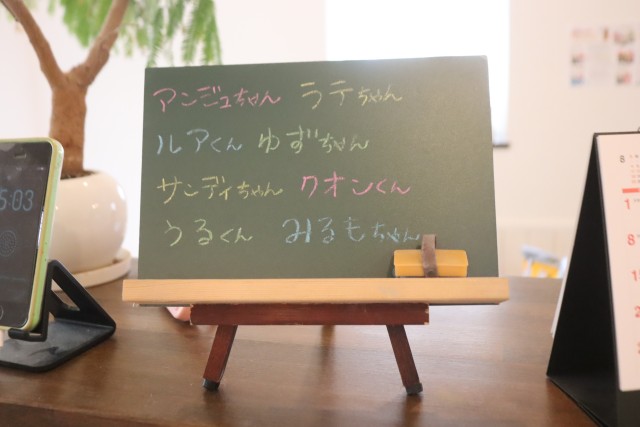 アンジュちゃん ラテちゃん
ルアくん ゆずちゃん
サンディちゃん クオンくん
うるくん みるもちゃん
5:03
8
1
8